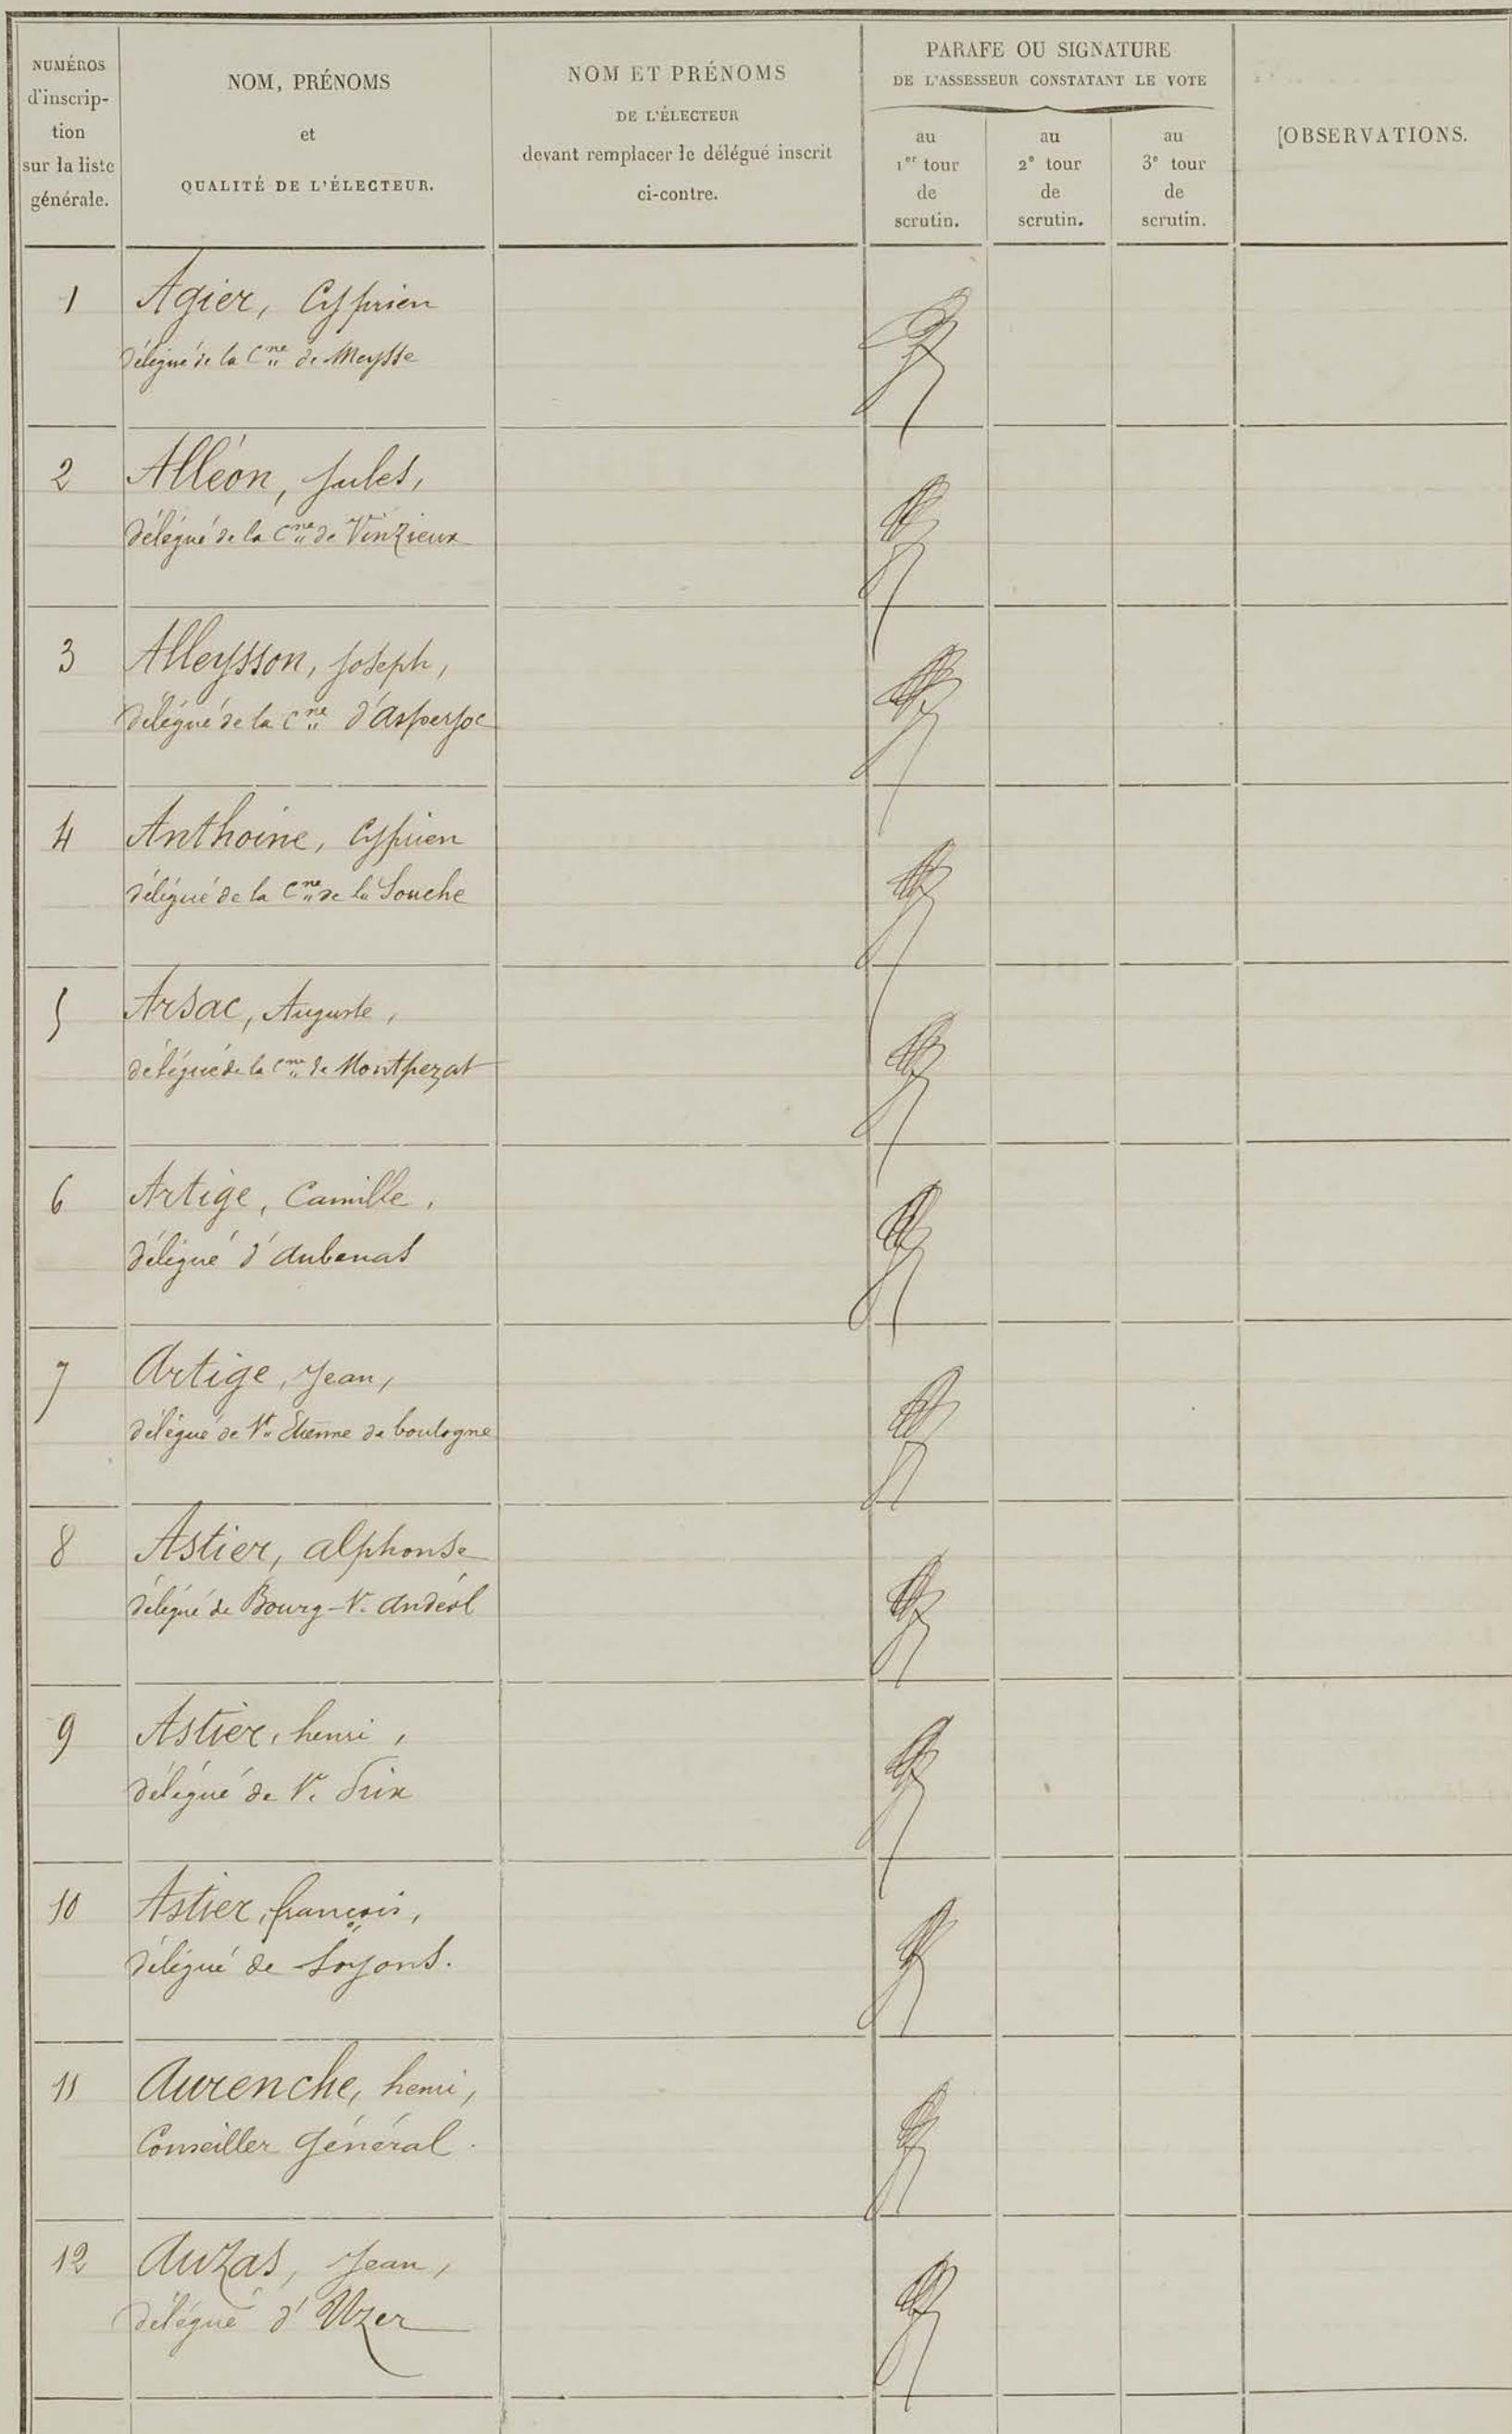 NUMÉROS
d'inscrip-
tion
sur la liste
générale.
NOM, PRÉNOMS
et
QUALITÉ DE L'ÉLECTEUR.
NOM ET PRÉNOMS
DE L'ÉLECTEUR
devant remplacer le délégué inscrit
ci-contre.
PARAFE OU SIGNATURE
DE L'ASSESSEUR CONSTATANT LE VOTE
au
1er tour
de
scrutin.
au
2e tour
de
scrutin.
au
3e tour
de
scrutin.
[OBSERVATIONS.
1 Agier, Cyprien
délégué de la Cne de Meysse
2 Alléon, Jules,
délégué de la Cne de Vinzieux
3 Alleysson, Joseph,
délégué de la Cne d'Asperjoc
4 Anthoine, Cyprien
délégué de la Cne de la Souche
5 Arsac, Auguste,
délégué de la Cne de Montpezat
6 Artige, Camille,
délégué d'Aubenas
7 Artige, Jean,
délégué de St Etienne de boulogne
8 Astier, alphonse
délégué de Bourg-St. Andéol
9 Astier, henri,
délégué de St. Prix
10 Astier, françois,
délégué de Soyons.
11 Aurenche, henri,
Conseiller Général.
12 Auzas, Jean,
délégué d'Uzer